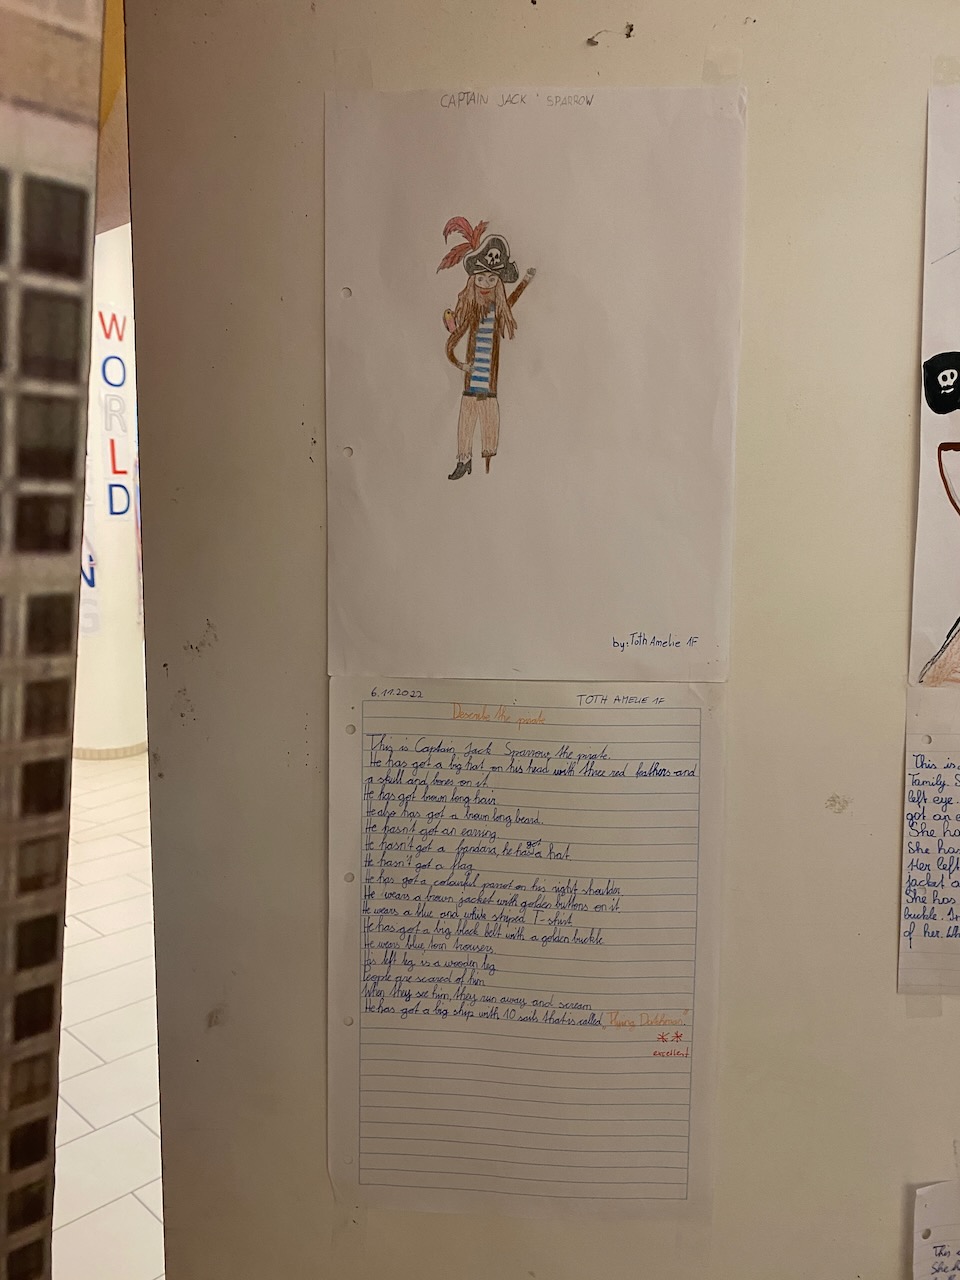 CAPTAIN JACK SPARROW
WORLD
by: Toth Amelie 1F
6.11.2022
TOTH AMELIE 1F
Describe the pirate
This is Captain Jack Sparrow, the pirate.
He has got a big hat on his head with three red feathers and
a skull and bones on it.
He has got brown long hair.
He also has got a brown long beard.
He hasn't got an earring
He hasn't got a bandana, he has got a hat.
He hasn't got a flag
He has got a colourful parrot on his right shoulder
He wears a brown jacket with golden buttons on it.
He wears a blue and white striped T-shirt
He has got a big black belt with a golden buckle
He wears blue, torn trousers.
His left leg is a wooden leg
People are scared of him
When they see him, they run away and scream
He has got a big ship with 10 sails that is called "Flying Dutchman".
excellent
This is
Family. S
left eye.
got an e
She ha
She has
Her left
jacket a
She has
buckle.
of her. Wh
This
She h